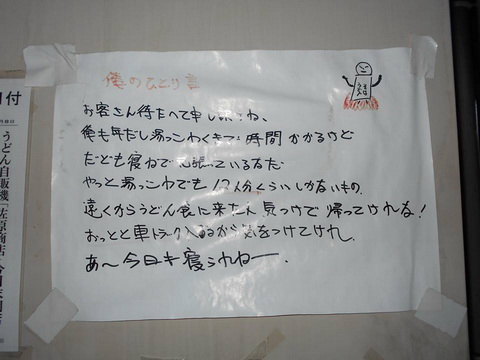 僕のひとり言
お客さん待たへて申し訳ねぇね、
俺も年だし湯っこわくまで時間かかるけど
だども寝ねで頑張っているなだ
やっと湯っこわでも 12人分くらいしかないもの。
遠くからうどん食に来た人 気つけで帰ってけれな!
おっとと車トラック入るから気をつけてけれ
あ〜今日も寝られねー.
うどん自販機「佐原商店